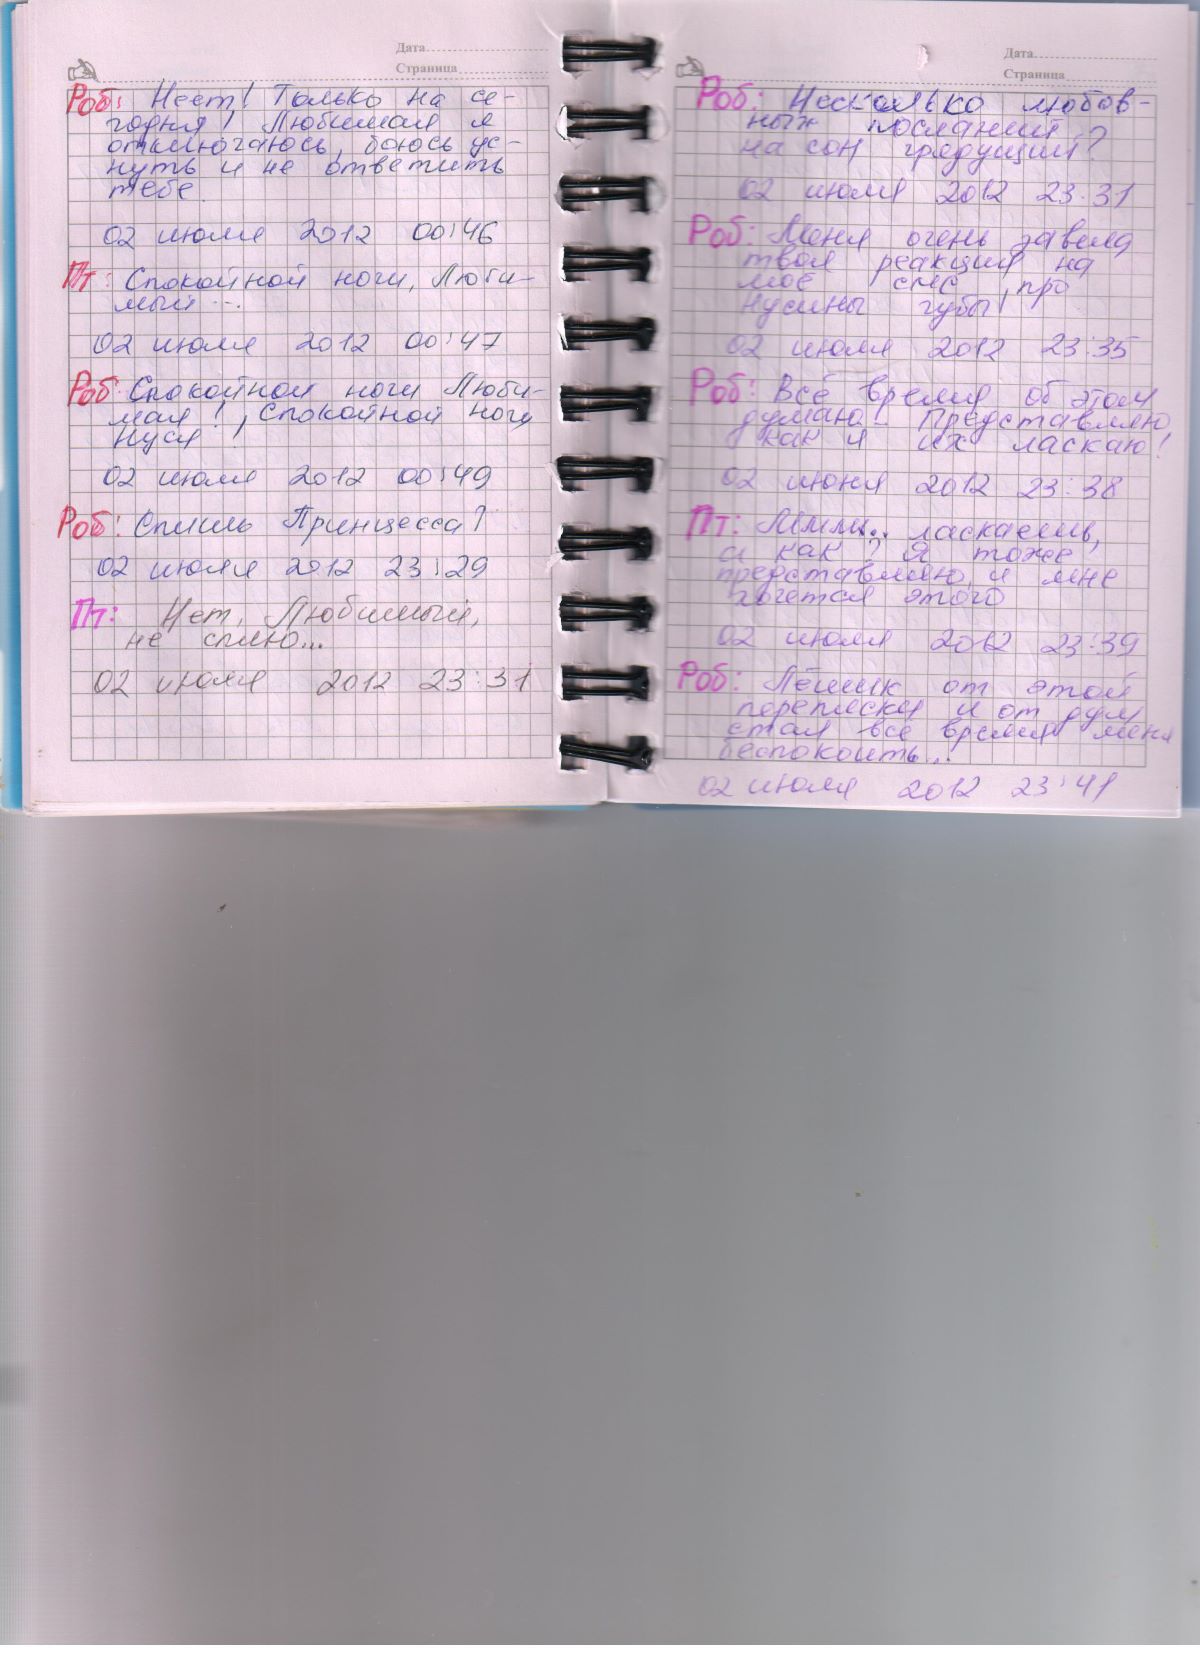 Дата
Страница
Роб: Неет! Только на се-
годня! Любимая я
отключаюсь, боюсь ус-
нуть и не ответить
тебе.
02 июля 2012 00:46
Пт: Спокойной ночи, Люби-
мый...
02 июля 2012 00:47
Роб: Спокойной ночи Люби-
мая!, Спокойной ночи
Нуся!
02 июля 2012 00:49
Роб: Спишь Принцесса?
02 июля 2012 23:29
Пт: Нет, Любимый,
не сплю...
02 июля 2012 23:31
Дата
Страница
Роб: Несколько любов-
ных посланий
на сон грядущий?
02 июля 2012 23:31
Роб: Меня очень завела
твоя реакция на
моё смс про
Нусины губы!
02 июля 2012 23:35
Роб: Всё время об этом
думаю!. Представляю
как я их ласкаю!
02 июля 2012 23:38
Пт: Ммм.. ласкаешь,
а как? Я тоже
представляю, и мне
хочется этого
02 июля 2012 23:39
Роб: Лёшик от этой
переписки и от дум
стал все время меня
беспокоить...
02 июля 2012 23:41